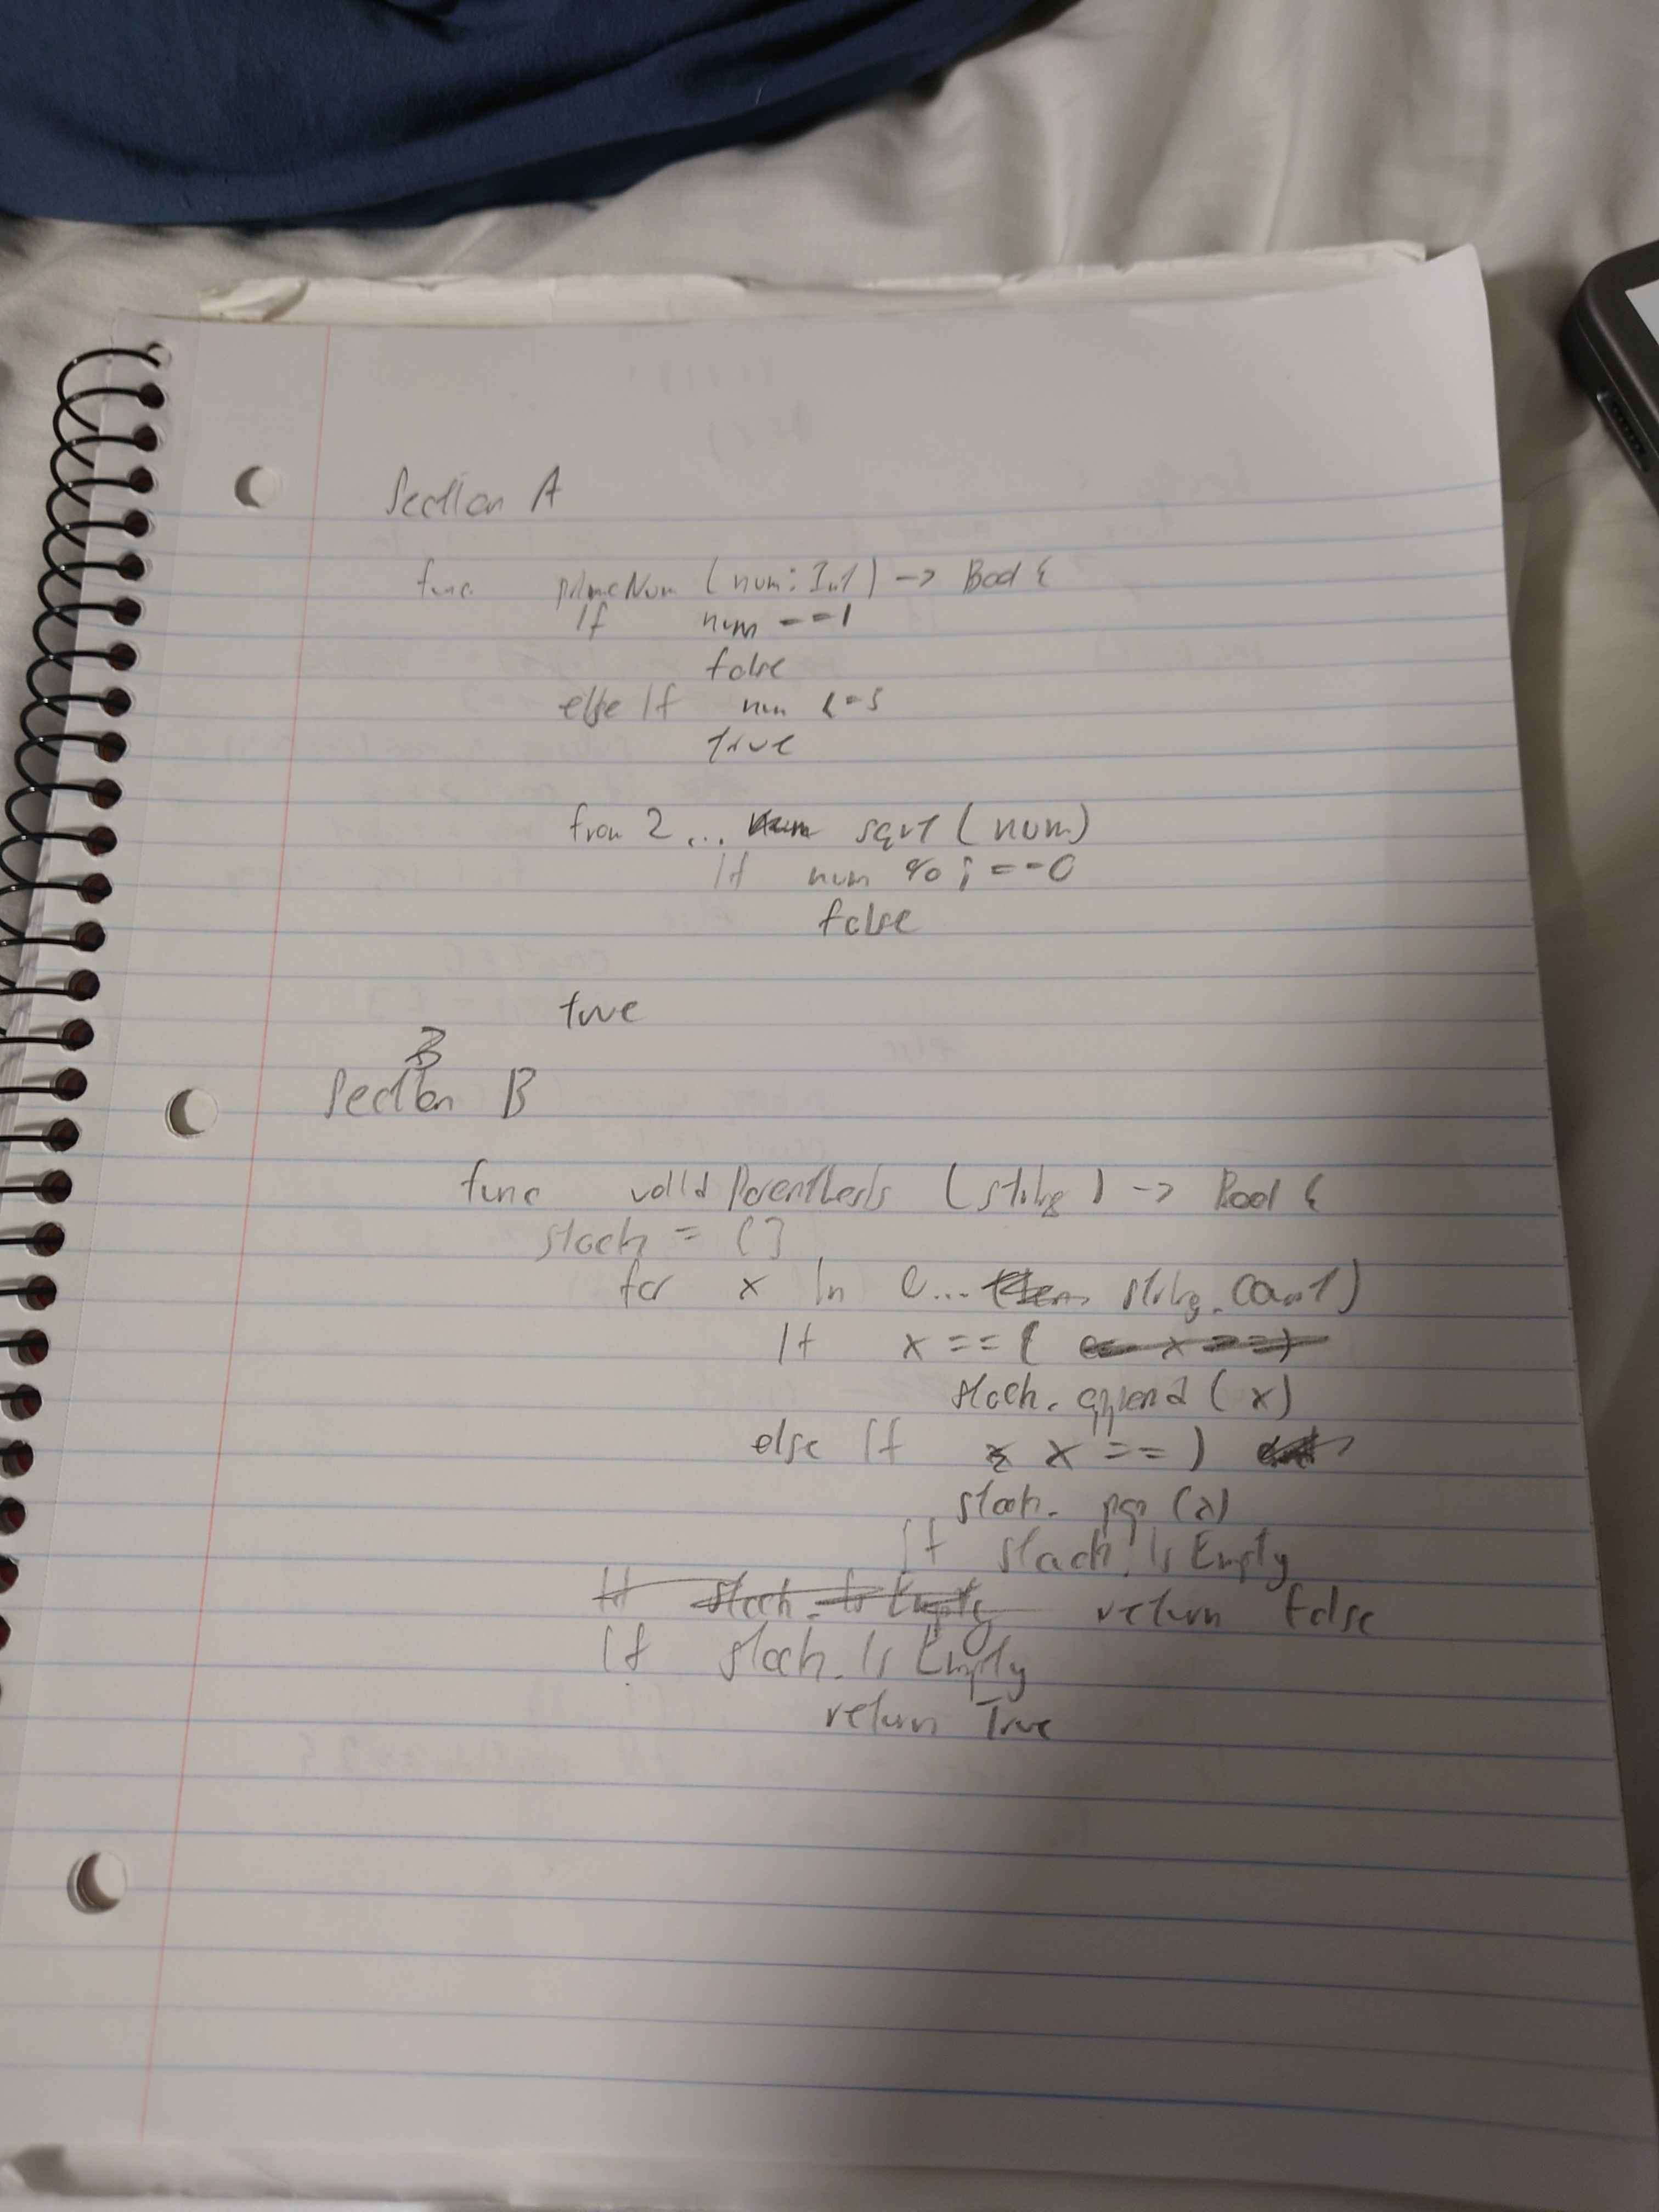 Section A
func primeNum (num: Int) -> Bool {
if num == 1
false
else if num <= 5
true
from 2... sqrt (num)
if num % i == 0
false
true
B
Section B
func validParenthesis (string) -> Bool {
stack = []
for x in 0... string.count)
if x == (
stack.append (x)
else if x == )
stack. pop (x)
if stack. is Empty
return false
if stack. is Empty
return True